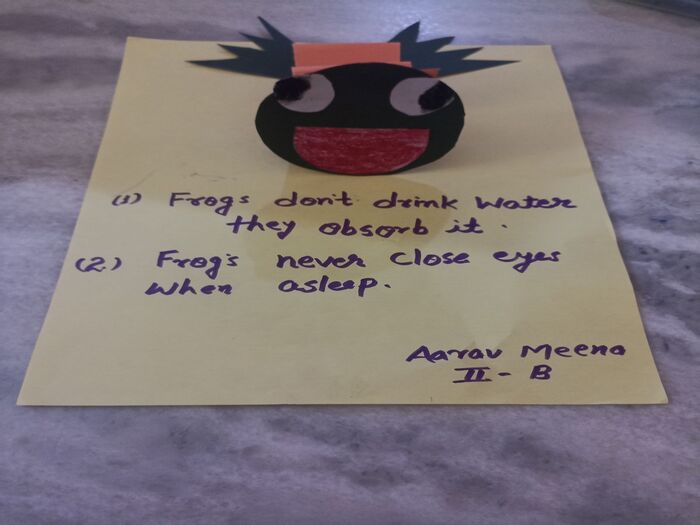 (1) Frogs don't drink water
they absorb it.
(2) Frog's never close eyes
when asleep.
Aarav Meena
II - B